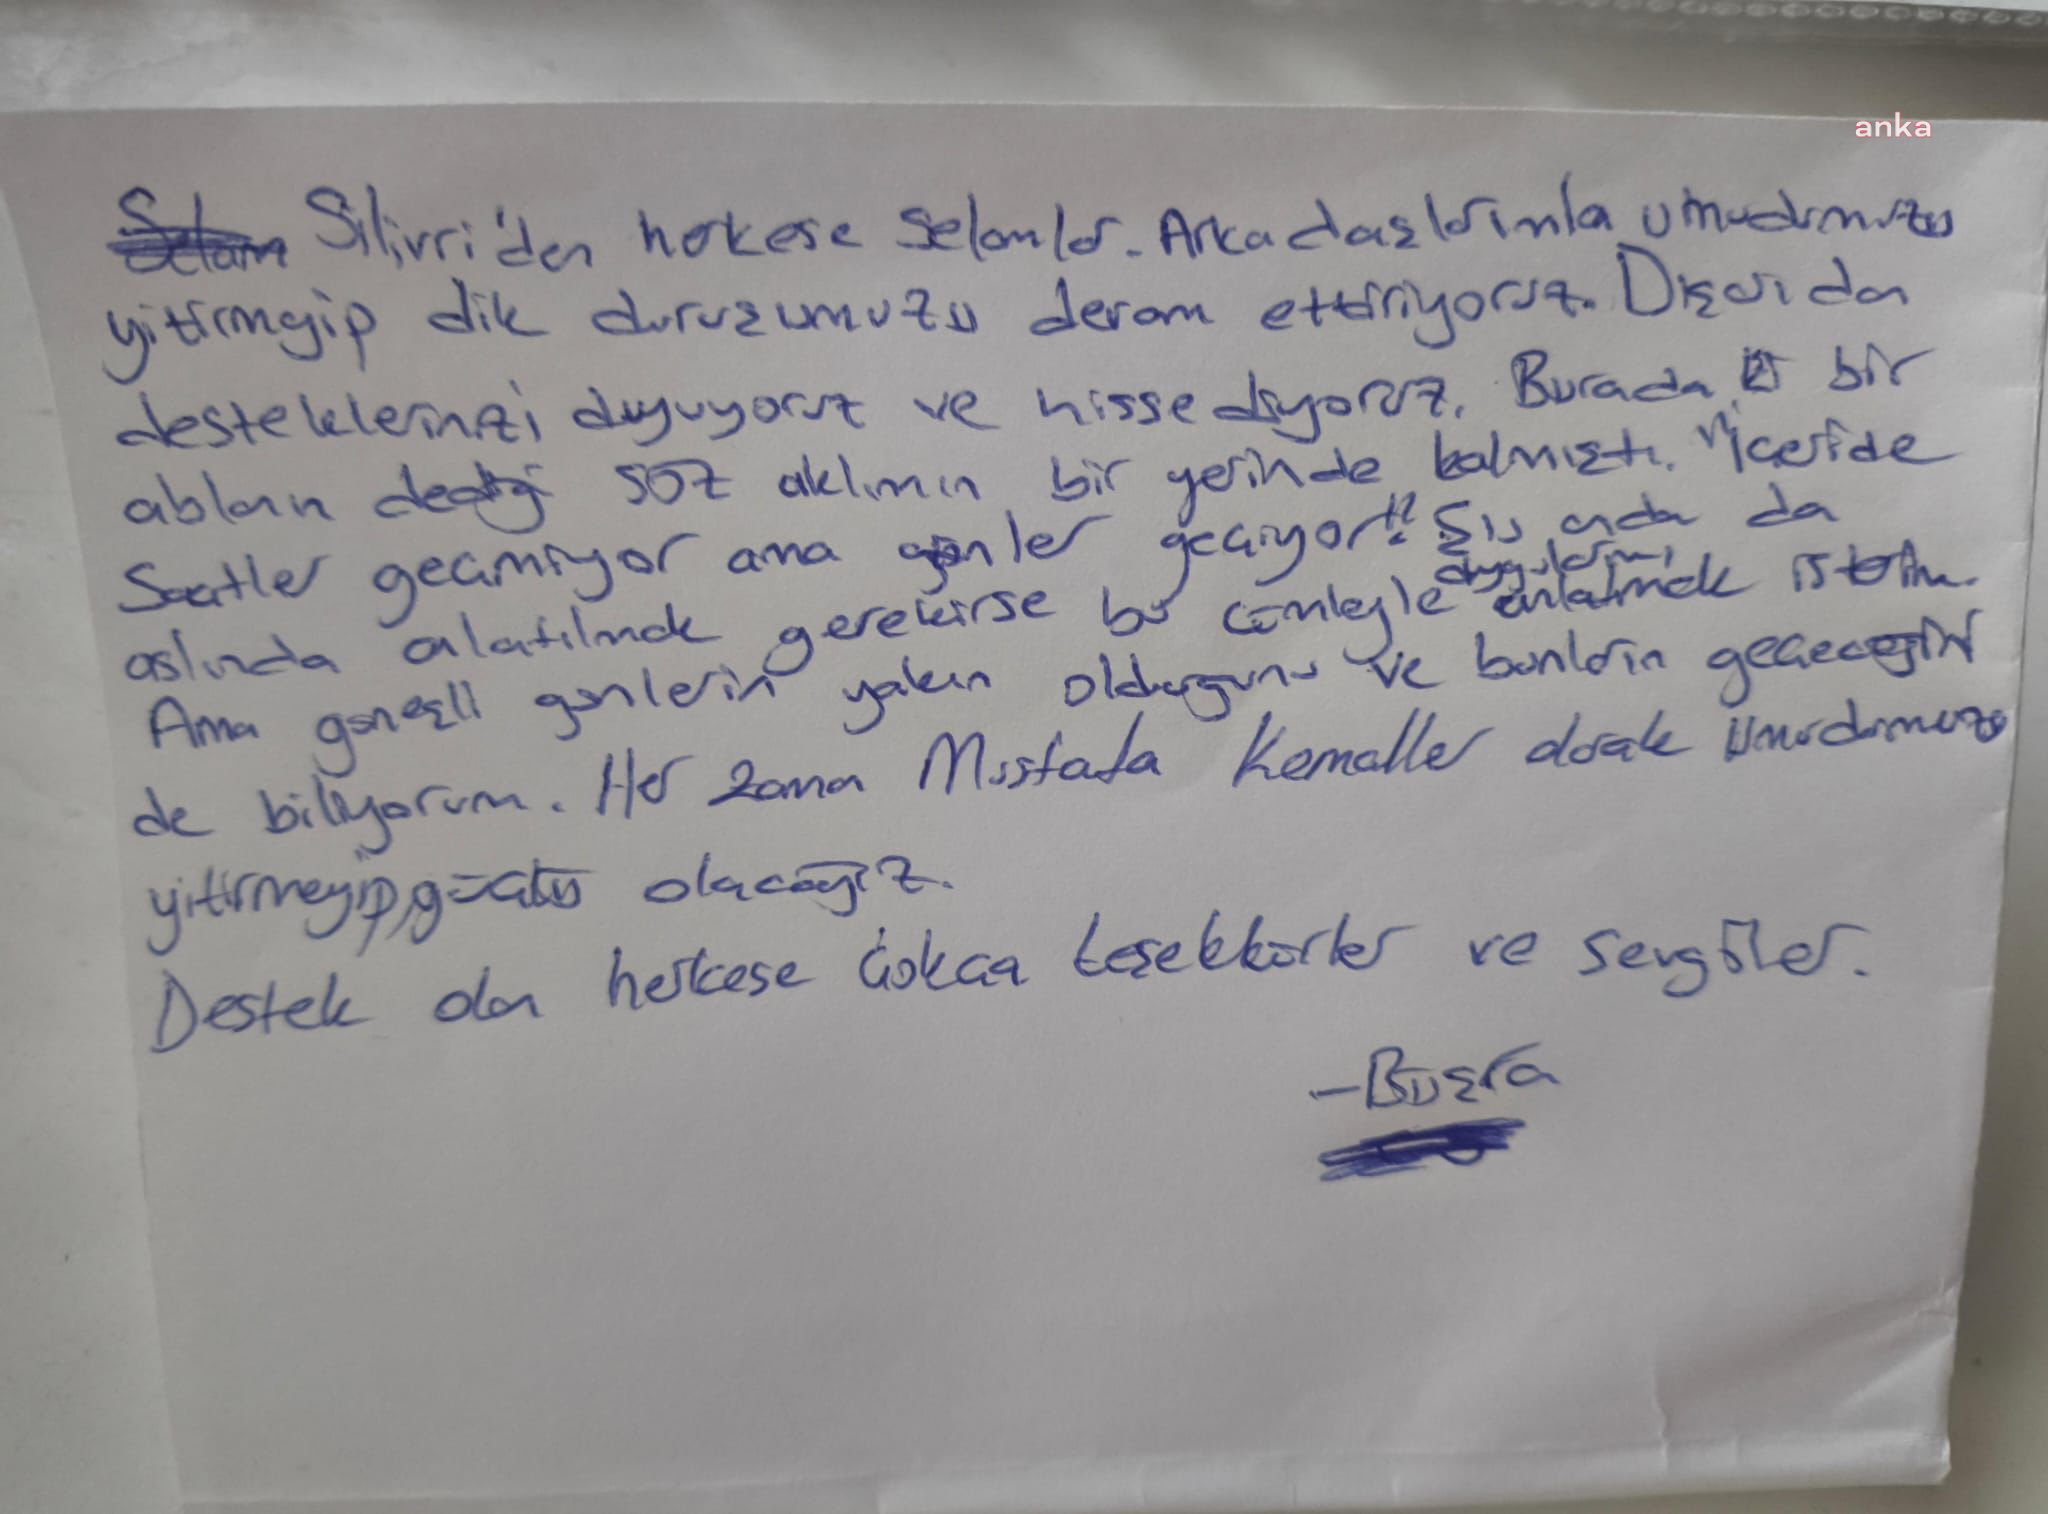 anka
Selam Silivri'den herkese selamlar. Arkadaşlarımla umudumuzu
yitirmeyip dik duruşumuzu devam ettiriyoruz. Dışarıdan
desteklerinizi duyuyoruz ve hissediyoruz. Burada bir
ablanın dediği söz aklımın bir yerinde kalmıştı. "İçeride
Saatler geçmiyor ama günler geçiyor!!" Şu anda da
aslında anlatılmak gerekirse bu cümleyle duygularımı anlatmak isterim.
Ama güneşli günlerin yakın olduğunu ve bunların geçeceğini
de biliyorum. Her zaman Mustafa Kemaller olarak umudumuzu
yitirmeyip, güçlü olacağız.
Destek olan herkese çokça teşekkürler ve sevgiler.
-Büşra